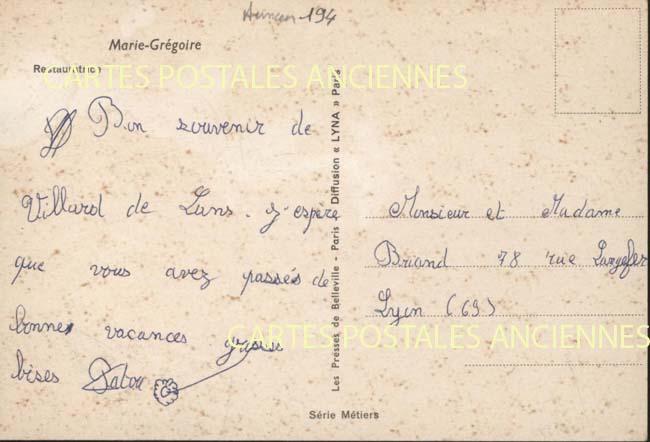 194
Marie-Grégoire
Restauratrice
CARTES POSTALES ANCIENNES
Bon souvenir de
Villard de Lans. J'espère
que vous avez passés de
bonnes vacances grosse
bises
Les Presses de Belleville - Paris Diffusion « LYNA » Paris
Monsieur et Madame
Briand 78 rue
Lyon (69)
CARTES POSTALES ANCIENNES
Série Métiers